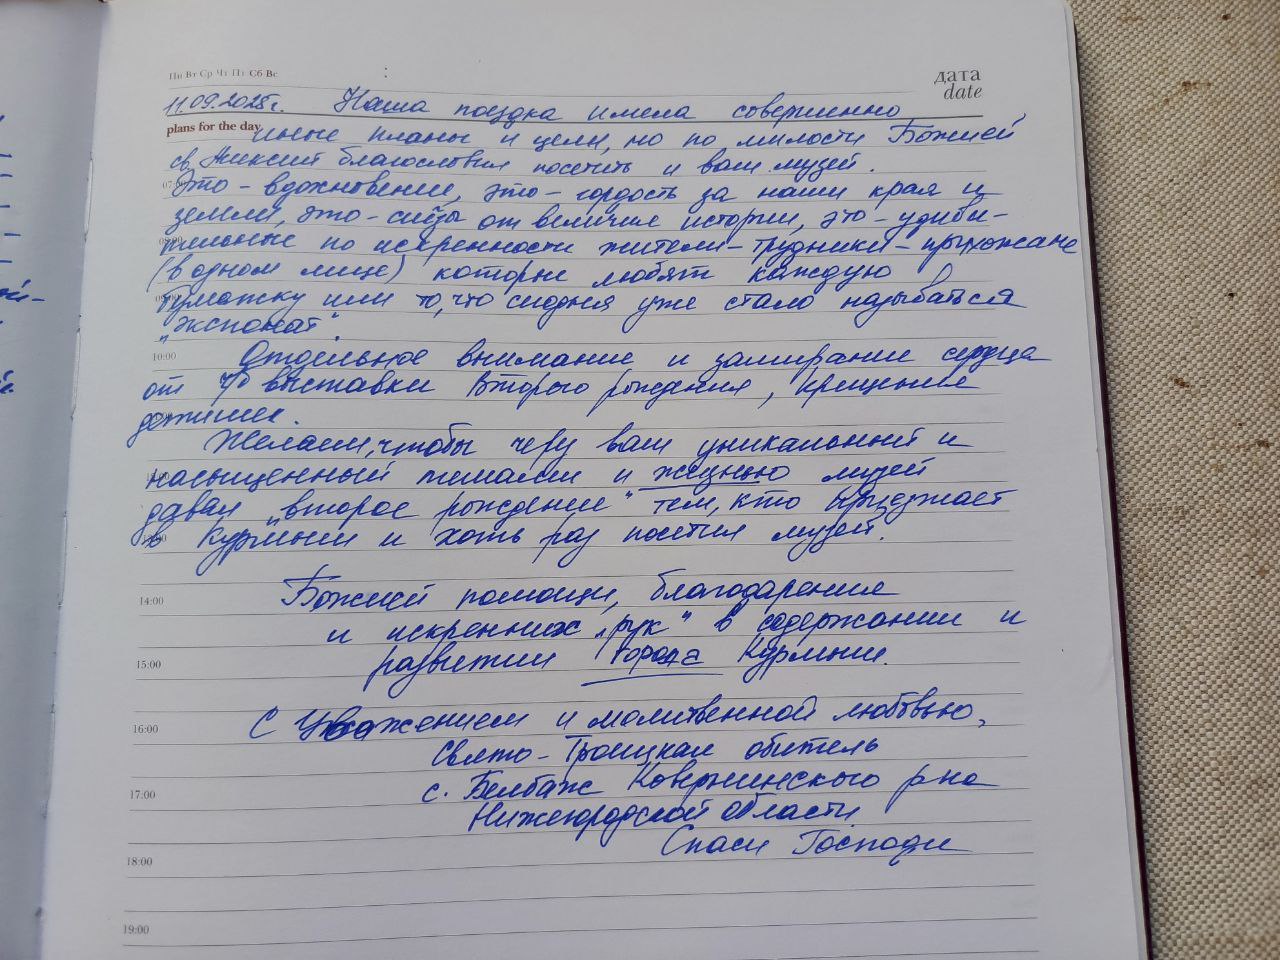 Пн Вт Ср Чт Пт Сб Вс
:
дата
date
11.09.2025г. Наша поездка имела совершенно
plans for the day
иные планы и цели, но по милости Божией
св. благословил посетить и ваш музей.
Это - вдохновение, это - гордость за наши края и
земли, это - от величия истории, это - удиви-
тельные по искренности жители - трудники - прихожане
(в одном лице) которые любят каждую
бумажку или то, что сегодня уже стало называться
„экспонат".
10:00
Отдельное внимание и замирание сердца
от выставки Второго рождения, крещения
детишек.
Желаем, чтобы ваш уникальный и
насыщенный и жизнью музей
давал „второе рождение" тем, кто приезжает
в Курмыш и хоть раз посетил музей.
14:00
Божией помощи, благодарения
и искренних „рук" в содержании и
15:00
развитии города Курмыш.
16:00
С Уважением и молитвенной любовью,
Свято-Троицкая обитель
17:00
с. Белбаж Ковернинского р-на
Нижегородской области
Спаси Господи
18:00
19:00